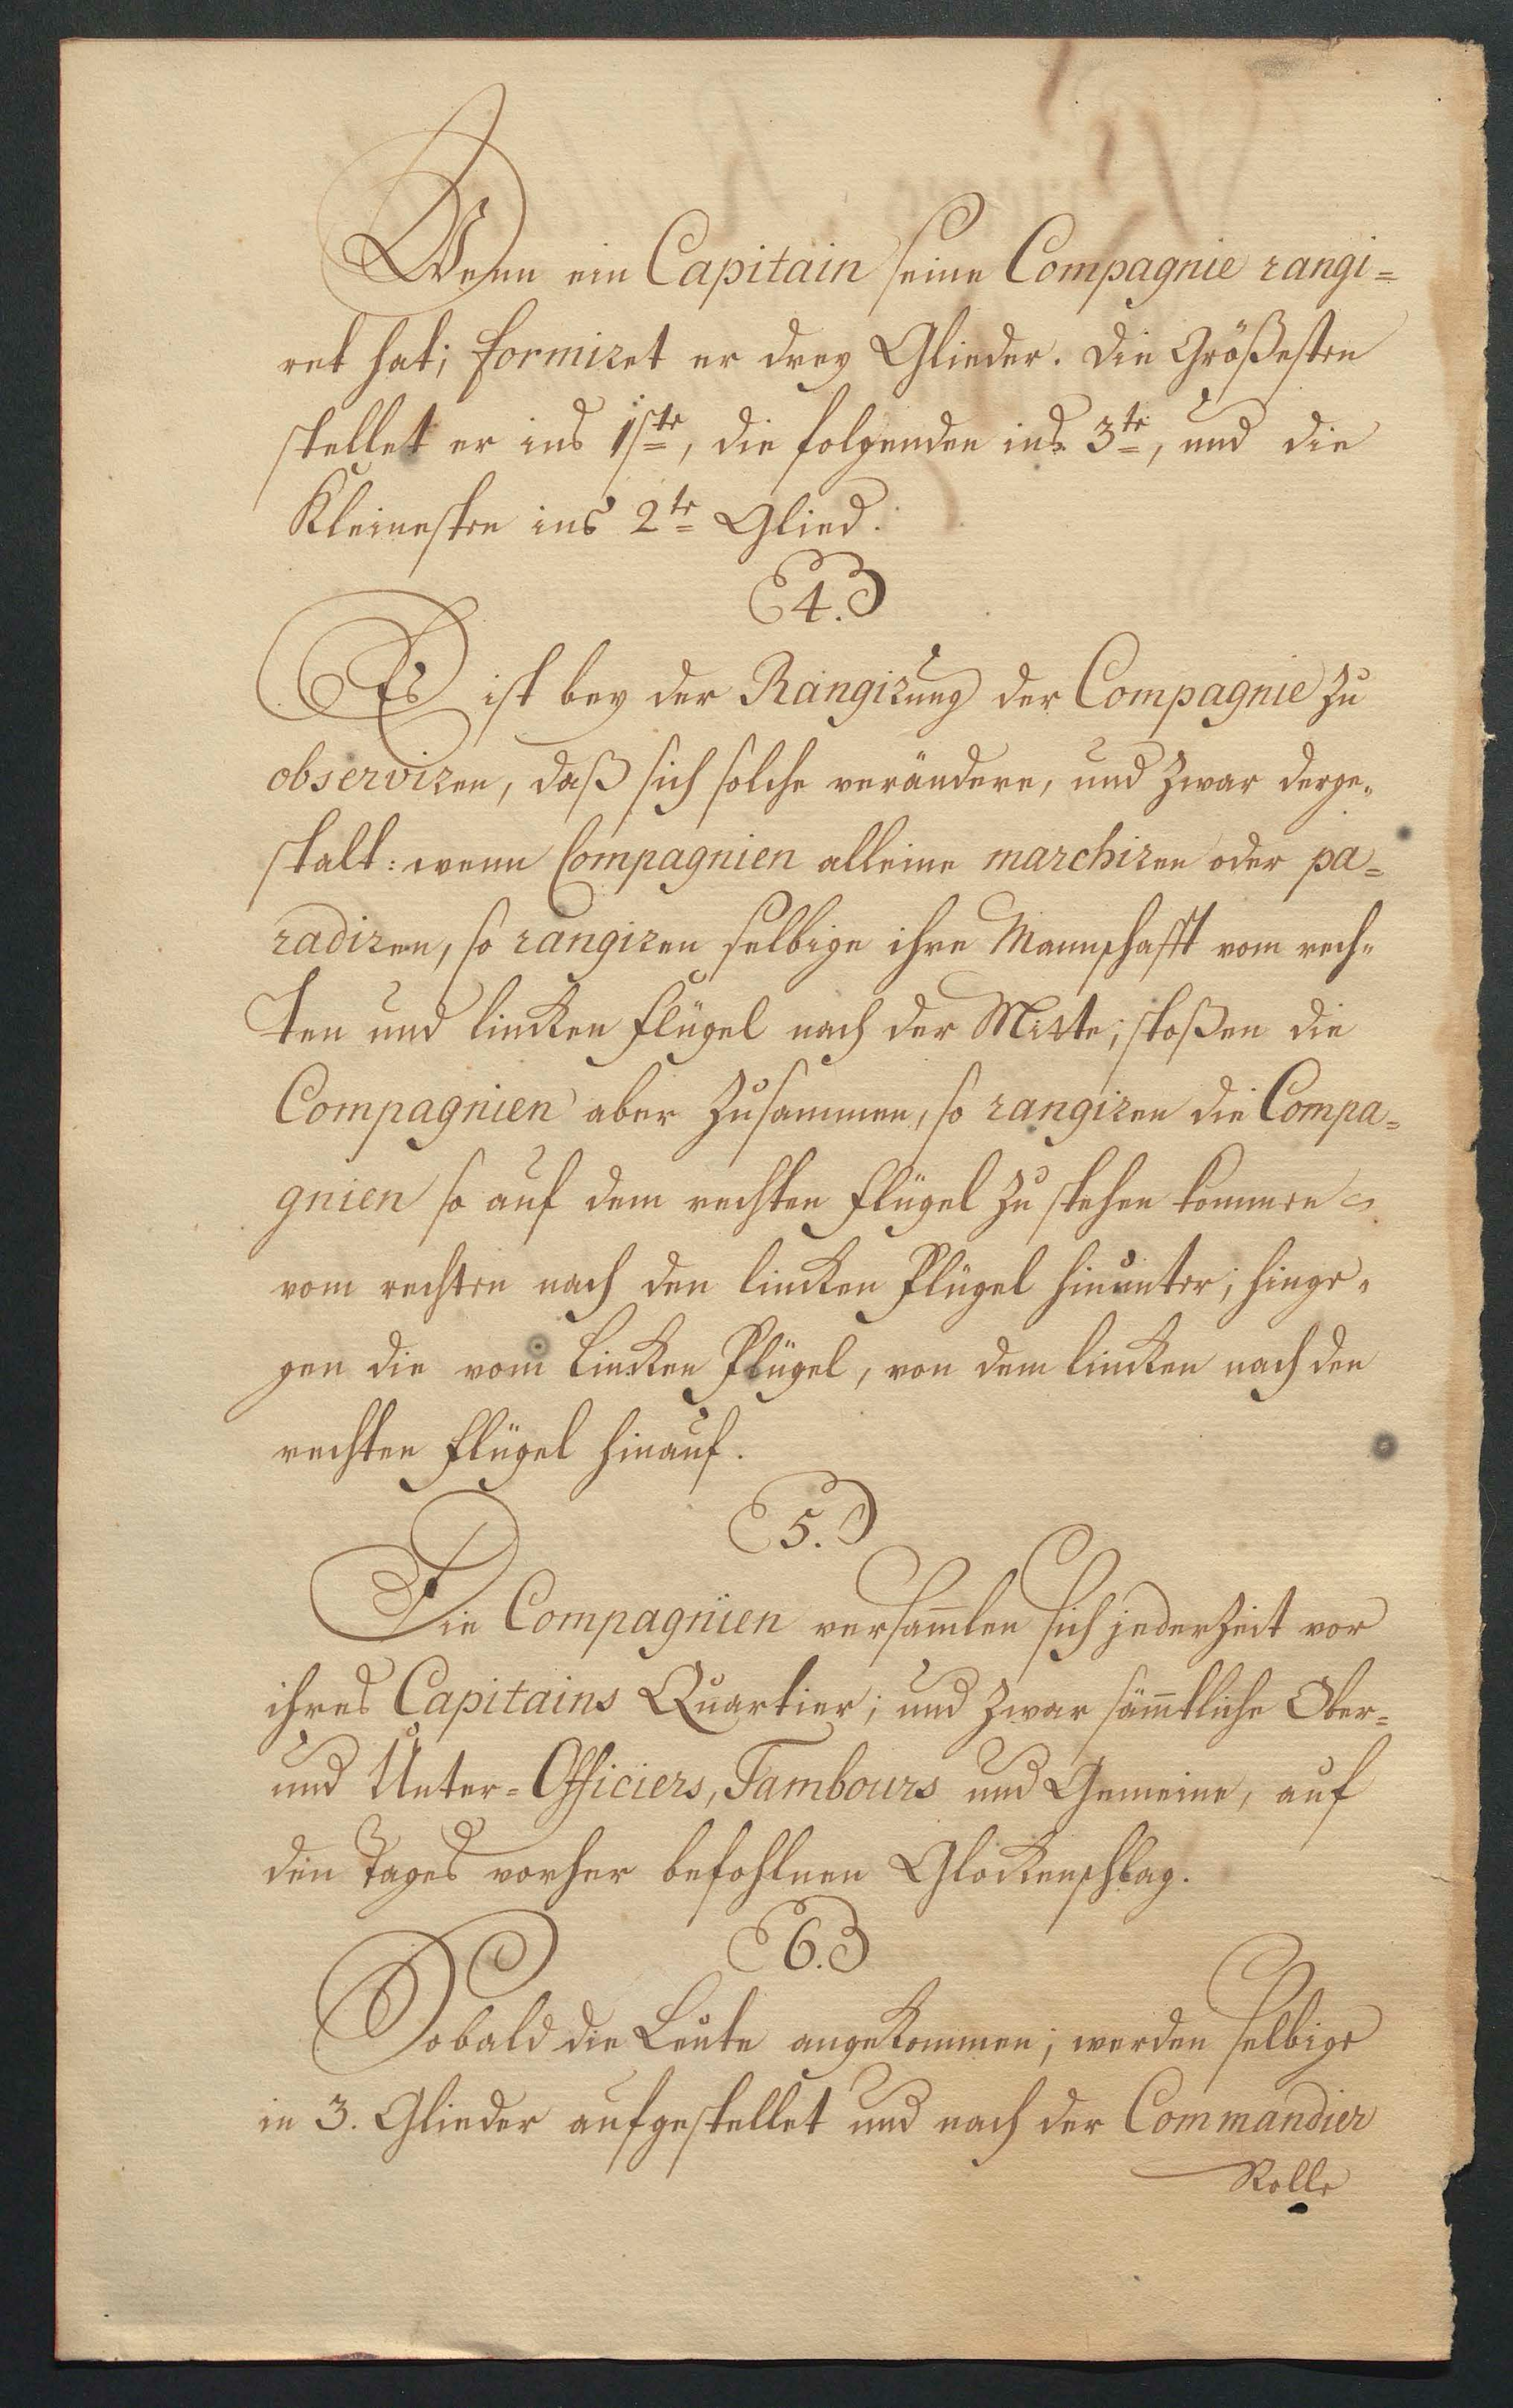 Wenn ein Capitain seine Compagnie rangi=
ret hat; formiret er drey Glieder. Die Größesten
stellet er ins 1ste, die folgenden ins 3te, und die
Kleinesten ins 2te Glied.
4.
Es ist bey der Rangirung der Compagnie zu
observiren, daß sich solche verändere, und zwar derge=
stalt: wenn Compagnien alleine marchiren oder pa=
radiren, so rangiren selbige ihre Mannschafft vom rech=
ten und lincken Flügel nach der Mitte; stoßen die
Compagnien aber zusammen, so rangiren die Compa=
gnien so auf dem rechten Flügel zu stehen kommen
vom rechten nach den lincken Flügel hinunter; hinge=
gen die vom lincken Flügel, von dem lincken nach den
rechten Flügel hinauf.
5.
Die Compagnien versam̄len sich jederzeit vor
ihres Capitains Quartier; und zwar säm̄tliche Ober=
und Unter=Officiers, Tambours und Gemeine, auf
den Tages vorher befohlnen Glockenschlag.
6.
Sobald die Leute angekommen; werden selbige
in 3. Glieder aufgestellet und nach der Commandier
Rolle